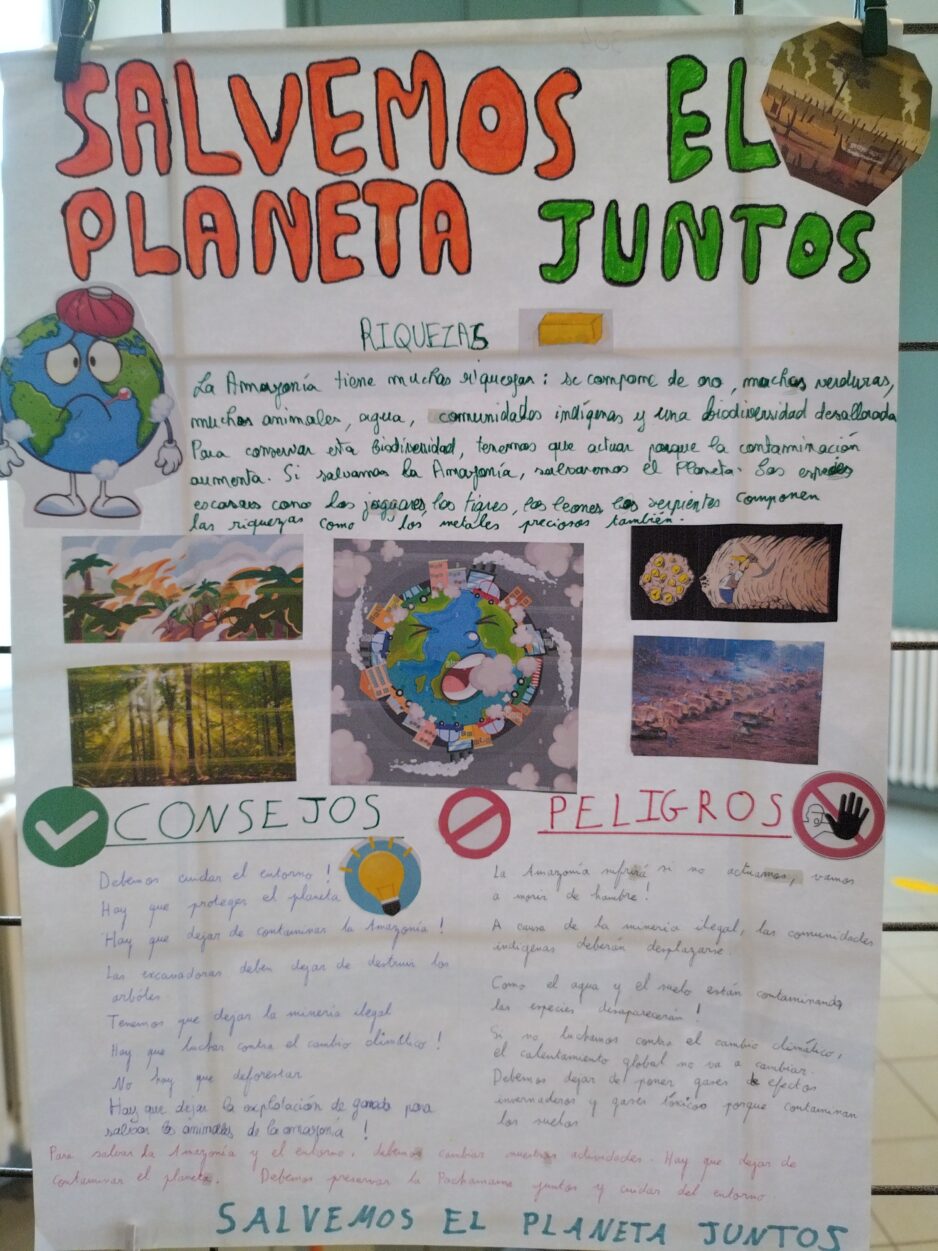 SALVEMOS EL
PLANETA JUNTOS
RIQUEZAS
La Amazonía tiene muchas riquezas : se compone de oro, muchas verduras,
muchos animales, agua, comunidades indígenas y una biodiversidad desallorada
Para conservar esta biodiversidad, tenemos que actuar porque la contaminación
aumenta. Si salvamos la Amazonía, salvaremos el Planeta. Las especies
escasas como los jaguares, los tigres, los leones los serpientes componen
las riquezas como los metales preciosos también.
CONSEJOS
Debemos cuidar el entorno !
Hay que proteger el planeta
Hay que dejar de contaminar la Amazonía !
Las excavadoras deben dejar de destruir los
arbóles.
Tenemos que dejar la mineria ilegal
Hay que luchar contra el cambio climático !
No hay que deforestar
Hay que dejar la explotación de ganado para
salvar los animales de la amazonía !
PELIGROS
La Amazonía sufrirá si no actuamos, vamos
a morir de hambre !
A causa de la mineria ilegal, las comunidades
indígenas deberán desplazarse.
Como el agua y el suelo están contaminando
las especies desaparecerán !
Si no luchamos contra el cambio climático,
el calentamiento global no va a cambiar.
Debemos dejar de poner gases de efectos
invernaderos y gases tóxicos porque contaminan
los suelos
Para salvar la Amazonía y el entorno, debemos cambiar nuestras actividades. Hay que dejar de
contaminar el planeta. Debemos preservar la Pachamama juntos y cuidar del entorno.
SALVEMOS EL PLANETA JUNTOS